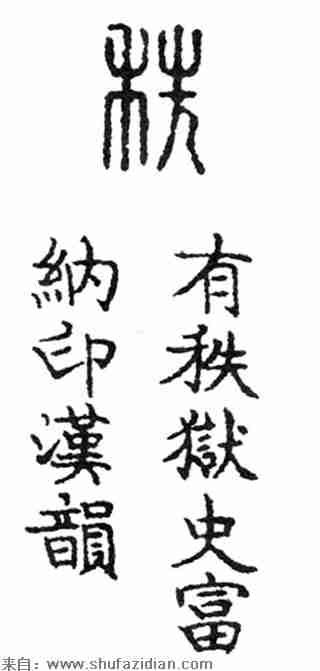 秩
有秩獄史富
納印漢韻
来自：www.shufazidian.com